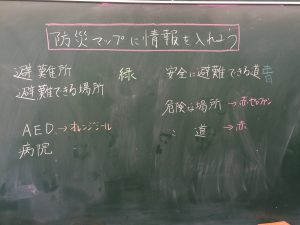 防災マップに情報を入れよう
避難所
避難できる場所 緑
AED→オレンジシール
病院
安全に避難できる道 青
危険な場所→赤セロファン
〃 道→赤